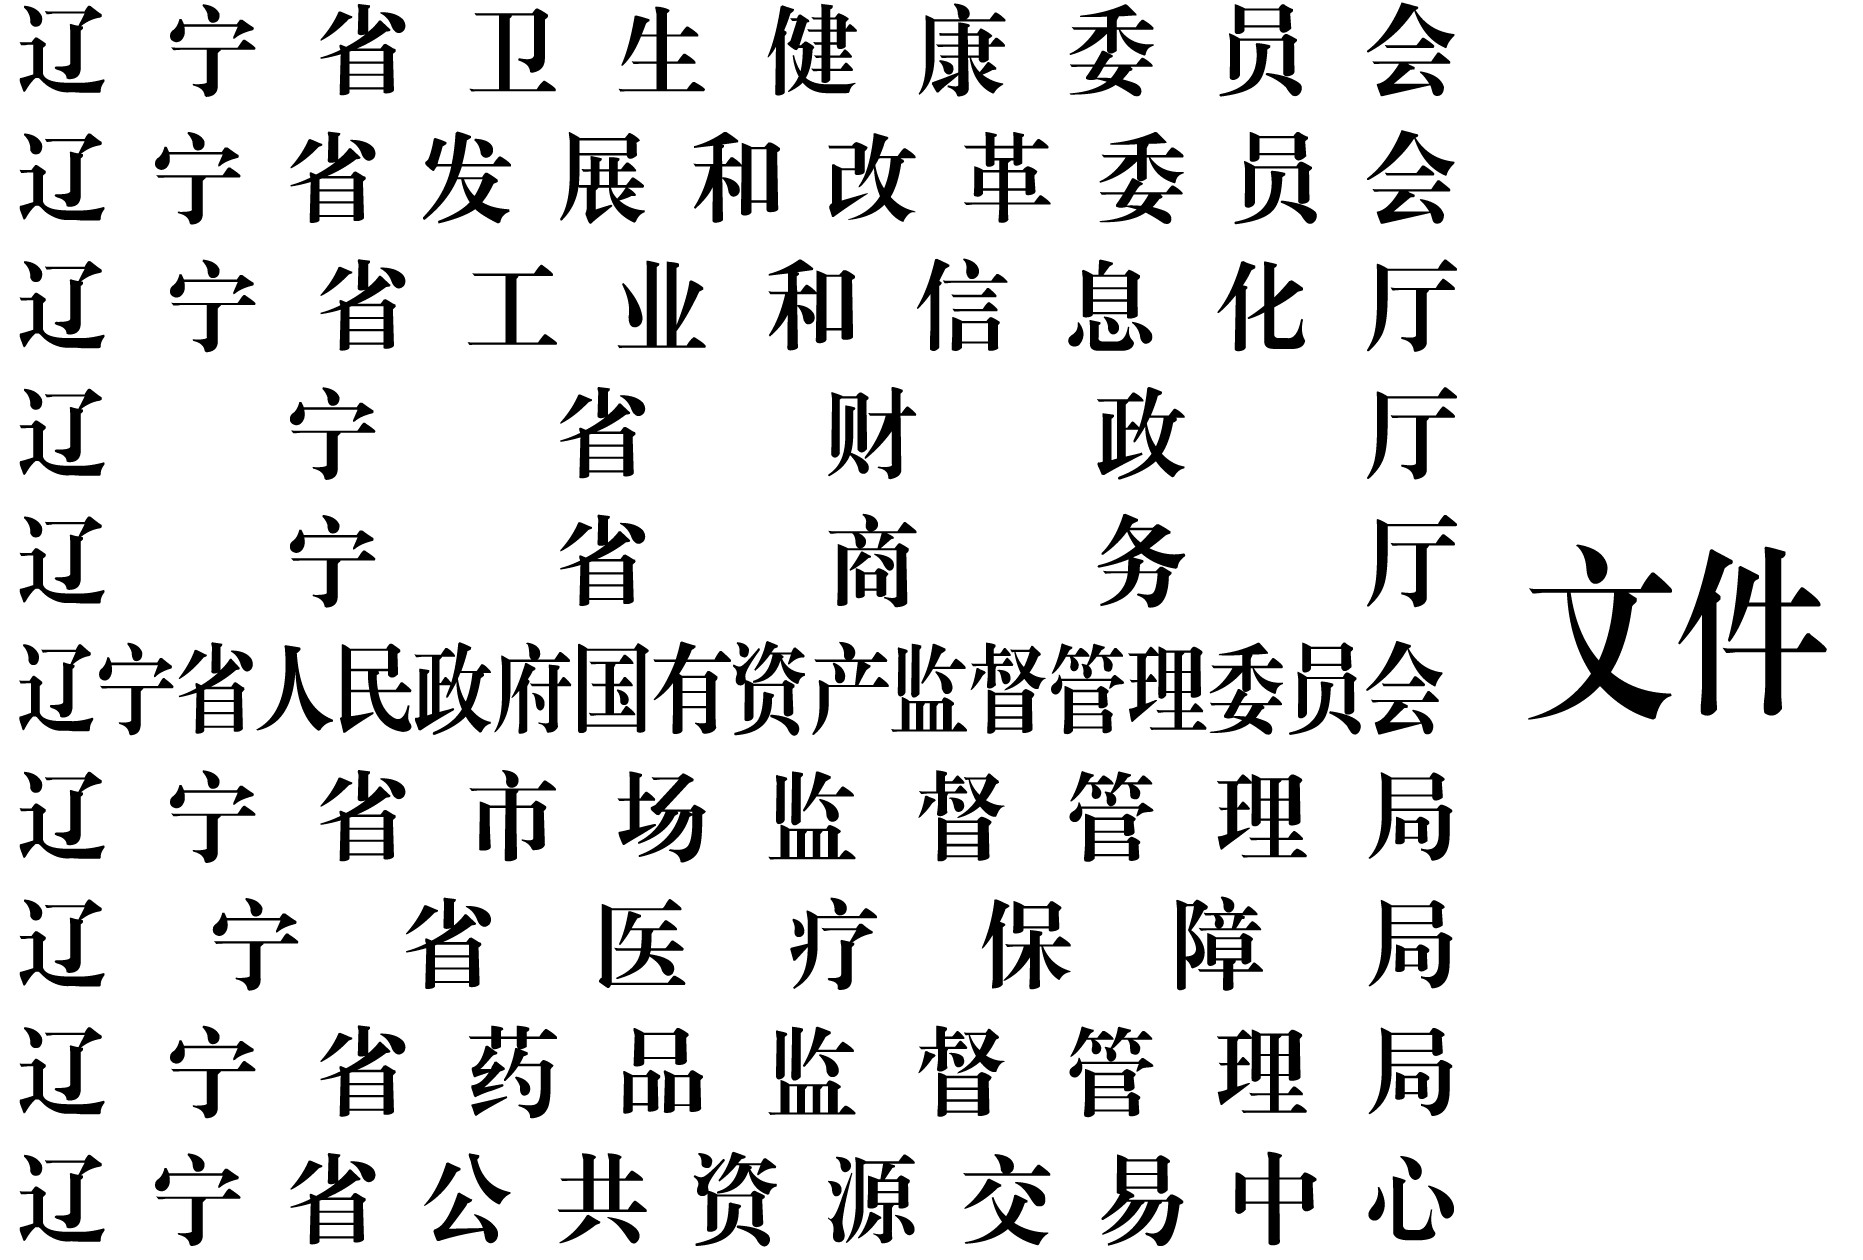 辽宁省卫生健康委员会
辽宁省发展和改革委员会
辽宁省工业和信息化厅
辽宁省财政厅
辽宁省商务厅
辽宁省人民政府国有资产监督管理委员会
辽宁省市场监督管理局
辽宁省医疗保障局
辽宁省药品监督管理局
辽宁省公共资源交易中心
文件